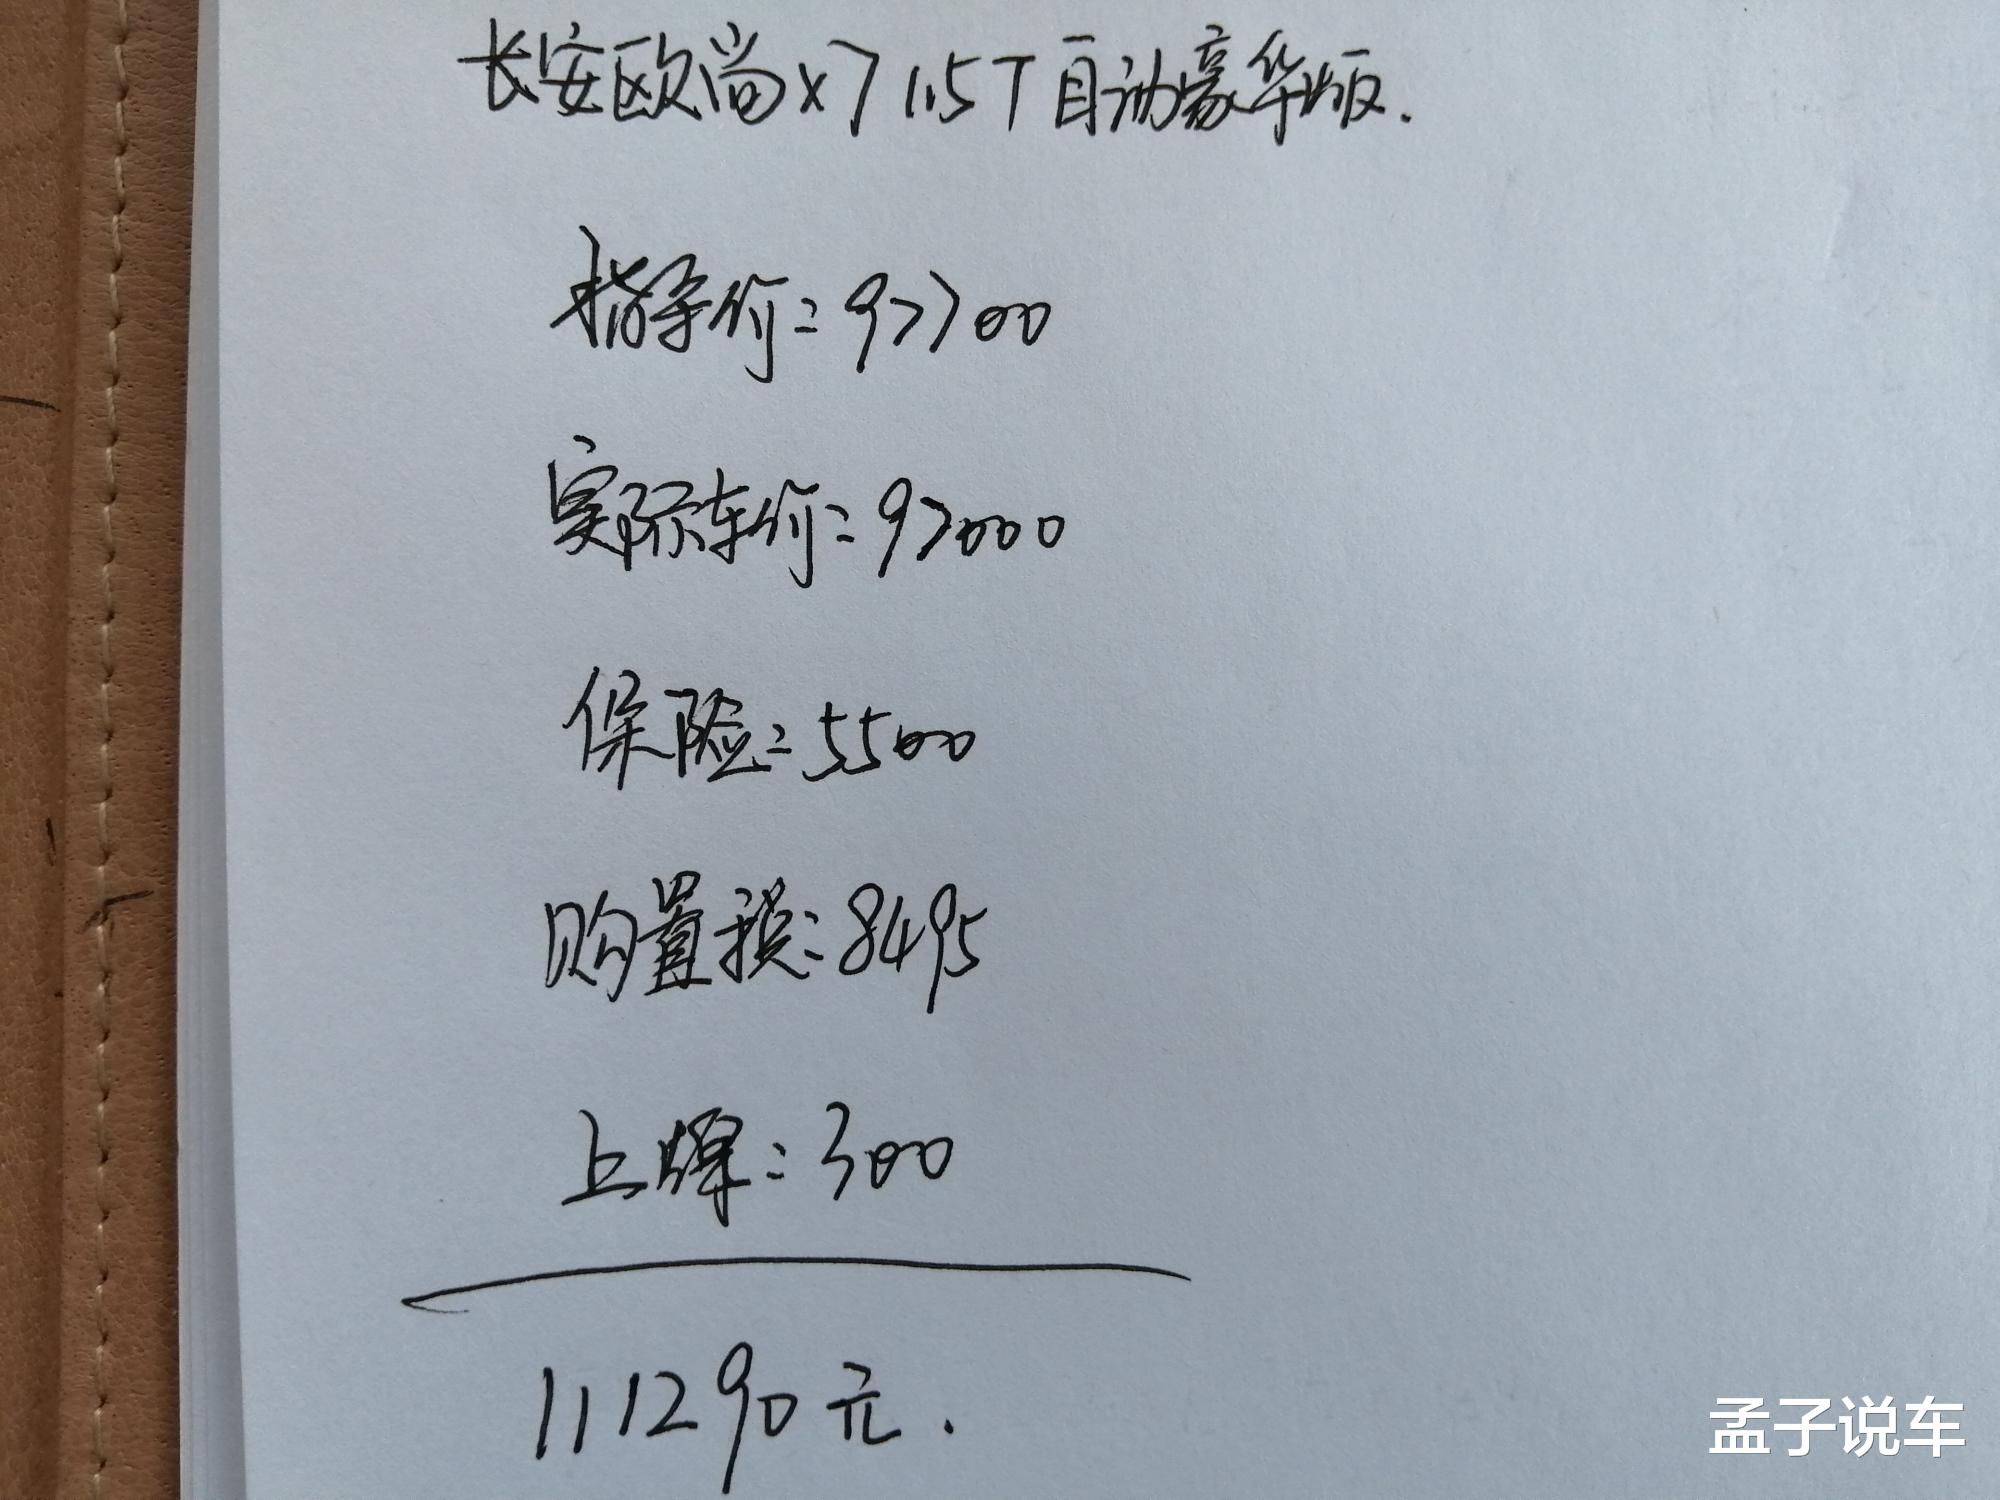 长安欧尚x7 1.5T自动豪华版.
指导价:97700
实际车价:97000
保险:5500
购置税:8495
上牌:300
111290元.
孟子说车